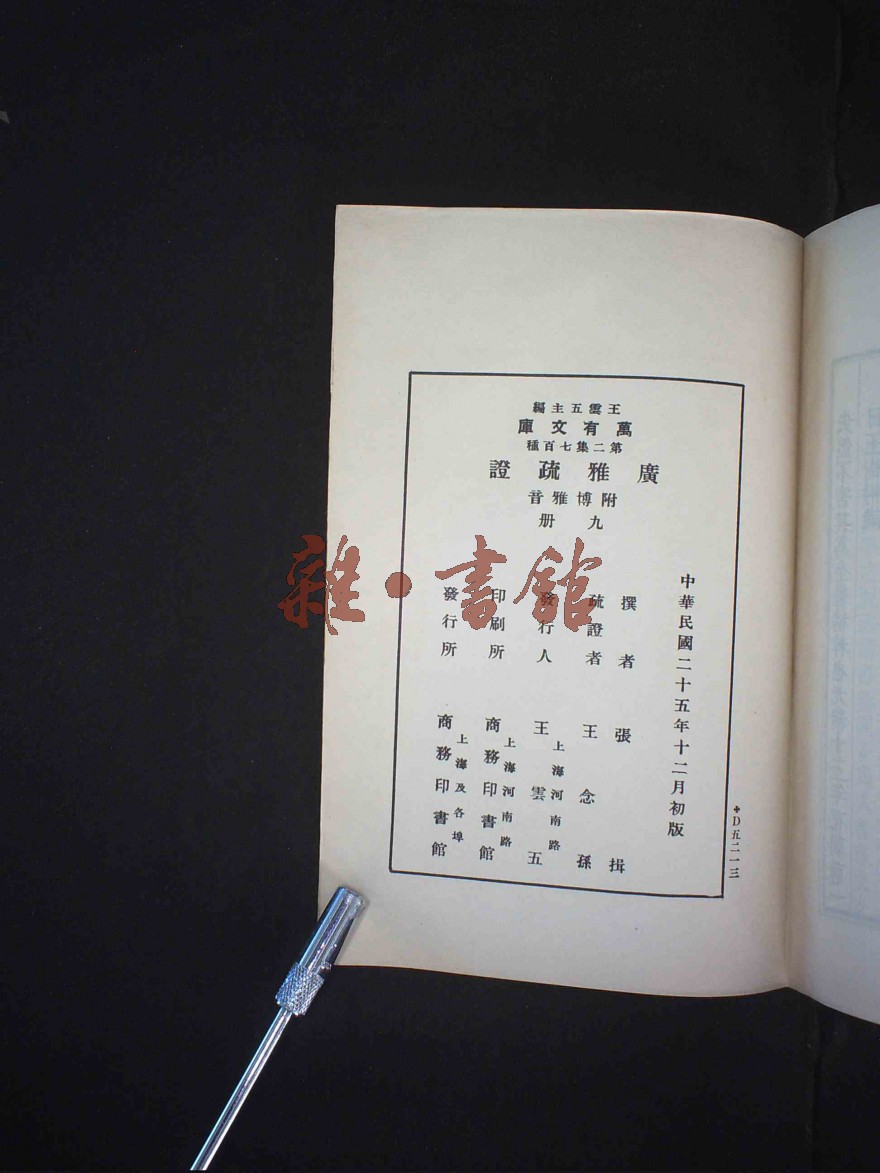 王雲五主編
萬有文庫
第二集七百種
廣雅疏證
附博雅音
九册
中華民國二十五年十二月初版
✤D五二一三
撰者 張揖
疏證者 王念孫
發行人 王雲五
上海河南路
印刷所 商務印書館
上海河南路
發行所 商務印書館
上海及各埠
雜·書館